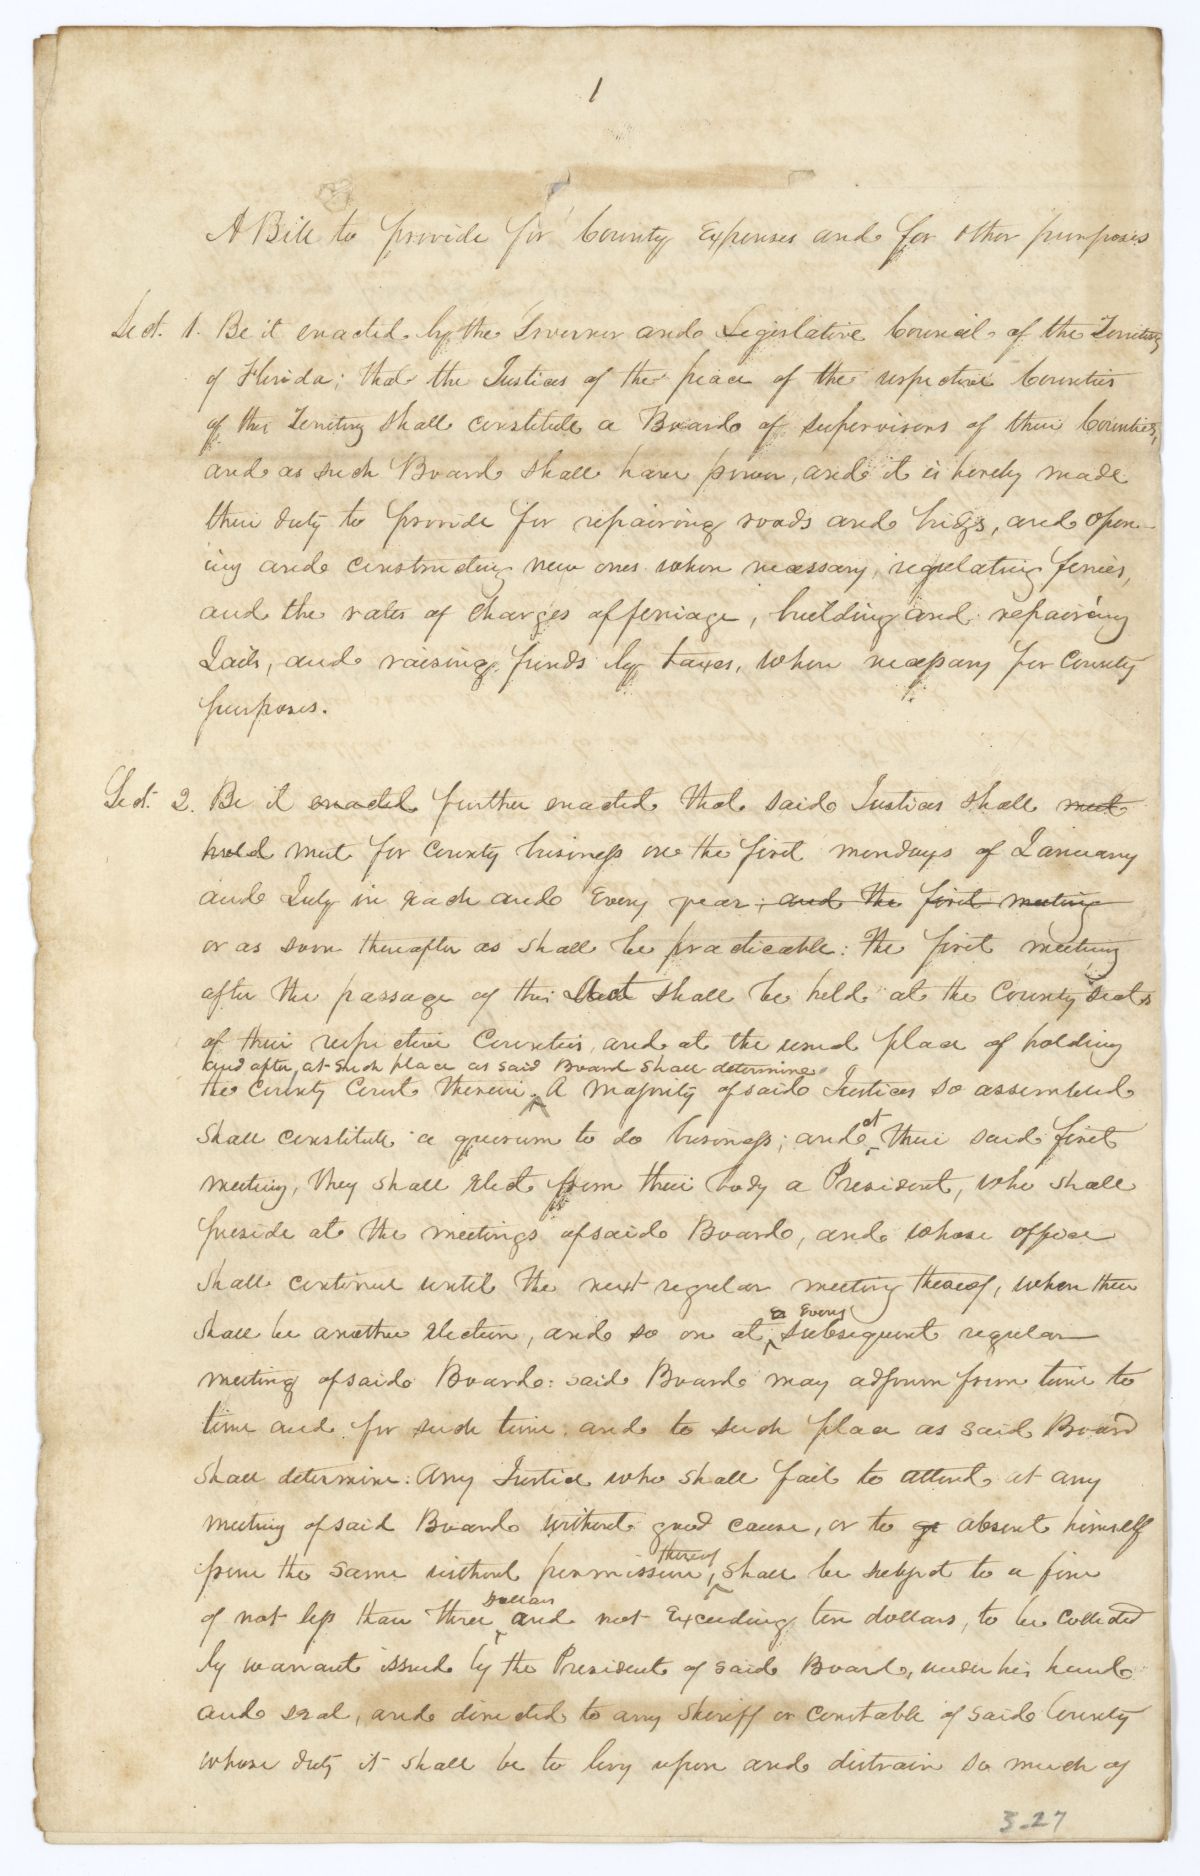 1
A Bill to provide for County Expenses and for other purposes
Sect. 1. Be it enacted by the Governor and Legislative Council of the Territory
of Florida; that the Justices of the peace of the respective Counties
of this Territory shall constitute a Board of supervisors of their Counties,
and as such Board shall have power, and it is hereby made
their duty to provide for repairing roads and bridgs, and open-
ing and constructing new ones when necessary, regulating ferries,
and the rates of charges of ferriage, building and repairing
Jails, and raising funds by taxes, when necessary for County
purposes.
Sect. 2. Be it enacted further enacted that said Justices shall meet
hold meet for County business on the first mondays of January
and July in each and every year, and the first meeting
or as soon thereafter as shall be practicable: The first meeting
after the passage of this Act shall be held at the County seats
of their respective Counties, and at the usual place of holding
and after, at such place as said Board shall determine
the County Court therein. A majority of said Justices so assembled
shall constitute a quorum to do business; and at their said first
meeting, they shall elect from their body a President, who shall
preside at the meetings of said Board, and whose office
shall continue until the next regular meeting thereof, when there
shall be another election, and so on at every subsequent regular
meeting of said Board: said Board may adjourn from time to
time and for such time and to such place as said Board
shall determine: Any Justice who shall fail to attend at any
meeting of said Board without good cause, or to absent himself
from the same without permission thereof, shall be subject to a fine
of not less than three Dollars and not exceeding ten dollars, to be collected
by warrant issued by the President of said Board, under his hand
and seal, and directed to any Sheriff or Constable of said County
whose duty it shall be to levy upon and distrain so much of
3-27